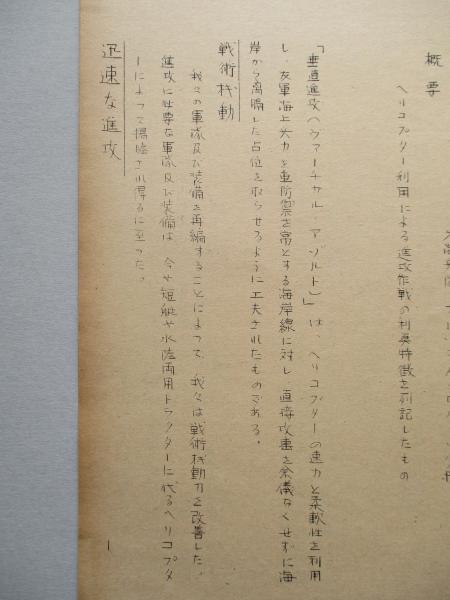 概要
ヘリコプター利用による進攻作戦の利奌特徴を列記したもの
「垂直進攻(ヴァーチカル・アソルト)」は、ヘリコプターの速力と柔軟性を利用
し、友軍海上火力を重防禦を常とする海岸線に対し、直接攻撃を余儀なくせずに海
岸から離隔した占位を取らせるように工夫されたものである。
戦術机動
我々の軍隊及び装備を再編することによって、我々は戦術机動力を改善した。
進攻に必要な軍隊及び装備は、今や短艇や水陸両用トラクターに代るヘリコプタ
ーによって揚陸され得るに至った。
迅速な進攻
1